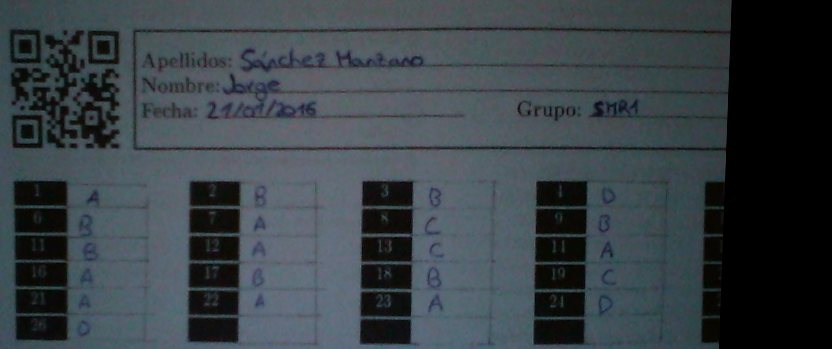 Apellidos: Sánchez Manzano
Nombre: Jorge
Fecha: 21/01/2016 Grupo: SMR1
1 A 2 B 3 B 4 D
6 B 7 A 8 C 9 B
11 B 12 A 13 C 14 A
16 A 17 B 18 B 19 C
21 A 22 A 23 A 24 D
26 D